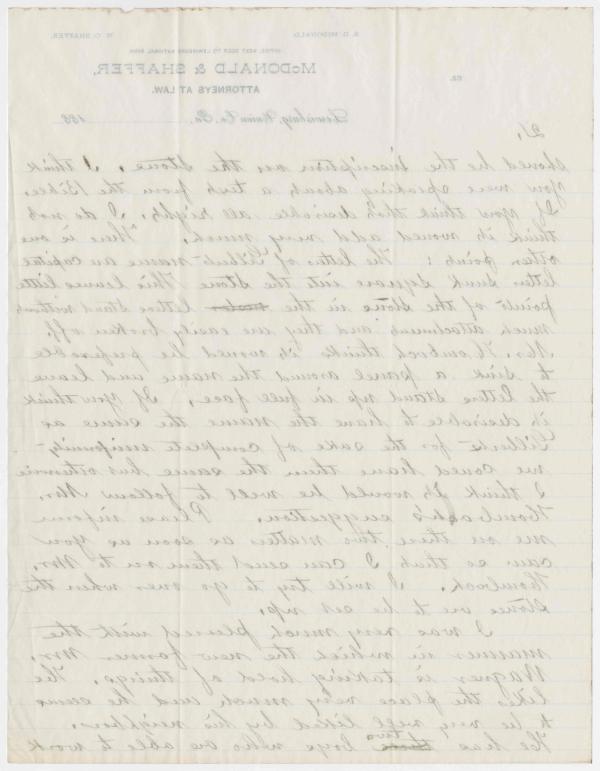 S. D. McDONALD. W. O. SHAFFER.
OFFICE, NEXT DOOR TO LEWISBURG NATIONAL BANK
McDONALD & SHAFFER,
ATTORNEYS AT LAW.
Lewisburg, Union Co. Pa. 188
2/,
should be the inscription on the stone. I think
you were speaking about a text from the Bible.
If you think this desirable all right. I do not
think it would add very much. There is one
other point: The letters of Gilbert's name are capital
letter sunk square into the stone This leaves little
points of the stone in the letters stand without
much attachment and they are easily broken off.
Mr. Hornbach thinks it would be preferable
to sink a panel around the name and leave
the letters stand up in full face, If you think
it desirable to have the name the same as
Gilbert's for the sake of complete uniformity
we could have them the same but otherwise
I think it would be well to follow Mr.
suggestion. Please inform
me on these two matters as soon as you
can so that I can send them on to Mr.
I will try to go over when the
stones are to be set up.
I was very much pleased with the
manner in which the new farmer Mr.
Wagner is taking hold of things. He
likes the place very much and he seems
to be very well liked by his neighbors.
He has two boys who are able to work